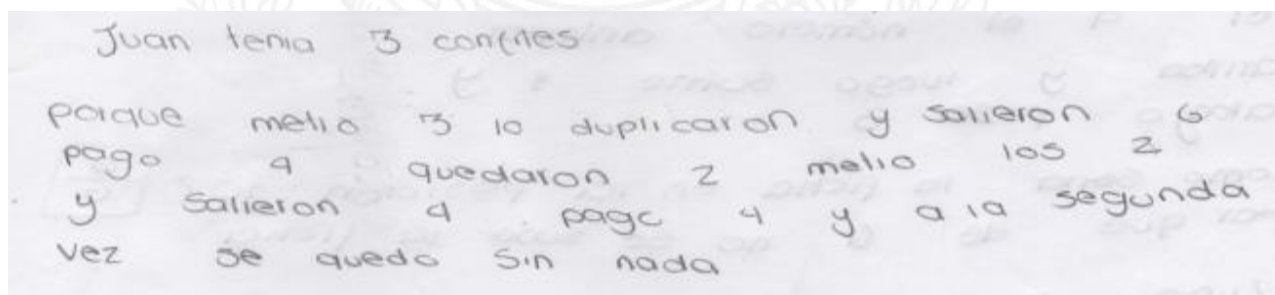 Juan tenia 3 canicas
porque metio 3 lo duplicaron y salieron 6
pago 4 quedaron 2 metio los 2
y salieron 4 pago 4 y a la segunda
vez se quedo sin nada